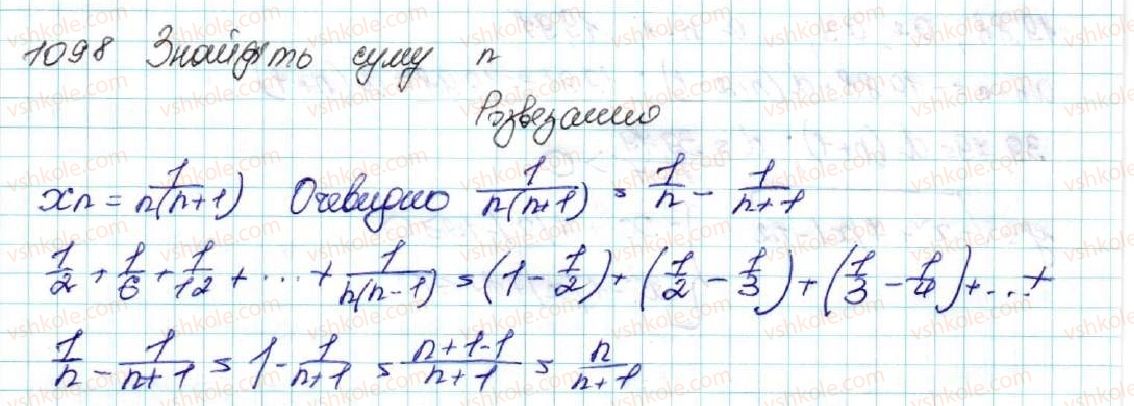 1098 Знайдіть суму n
Розвезанно
xn = 1/n(n+1) Очевидно 1/n(n+1) = 1/n - 1/n+1
1/2 + 1/6 + 1/12 + ... + 1/n(n-1) = (1 - 1/2) + (1/2 - 1/3) + (1/3 - 1/4) + ... +
1/n - 1/n+1 = 1 - 1/n+1 = n+1-1/n+1 = n/n+1
vshkole.com